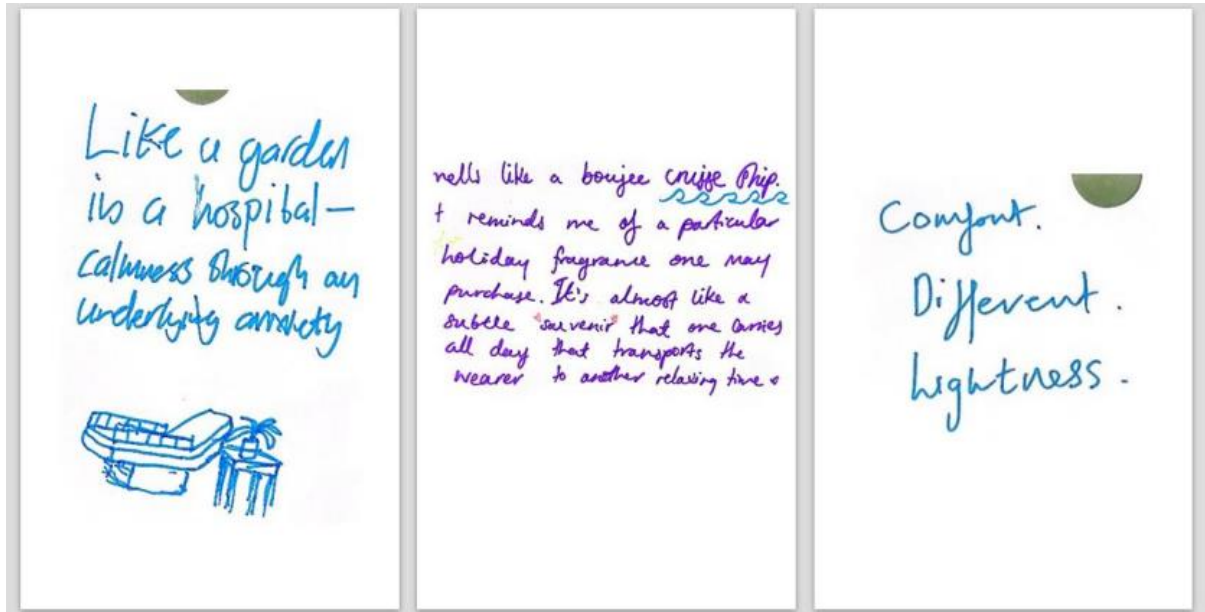 Like a garden
in a hospital –
calmness through an
underlying anxiety
nells like a boujee cruise ship.
t reminds me of a particular
holiday fragrance one may
purchase. It's almost like a
subtle "souvenir" that one carries
all day that transports the
wearer to another relaxing time.
Comfort.
Different.
Lightness.